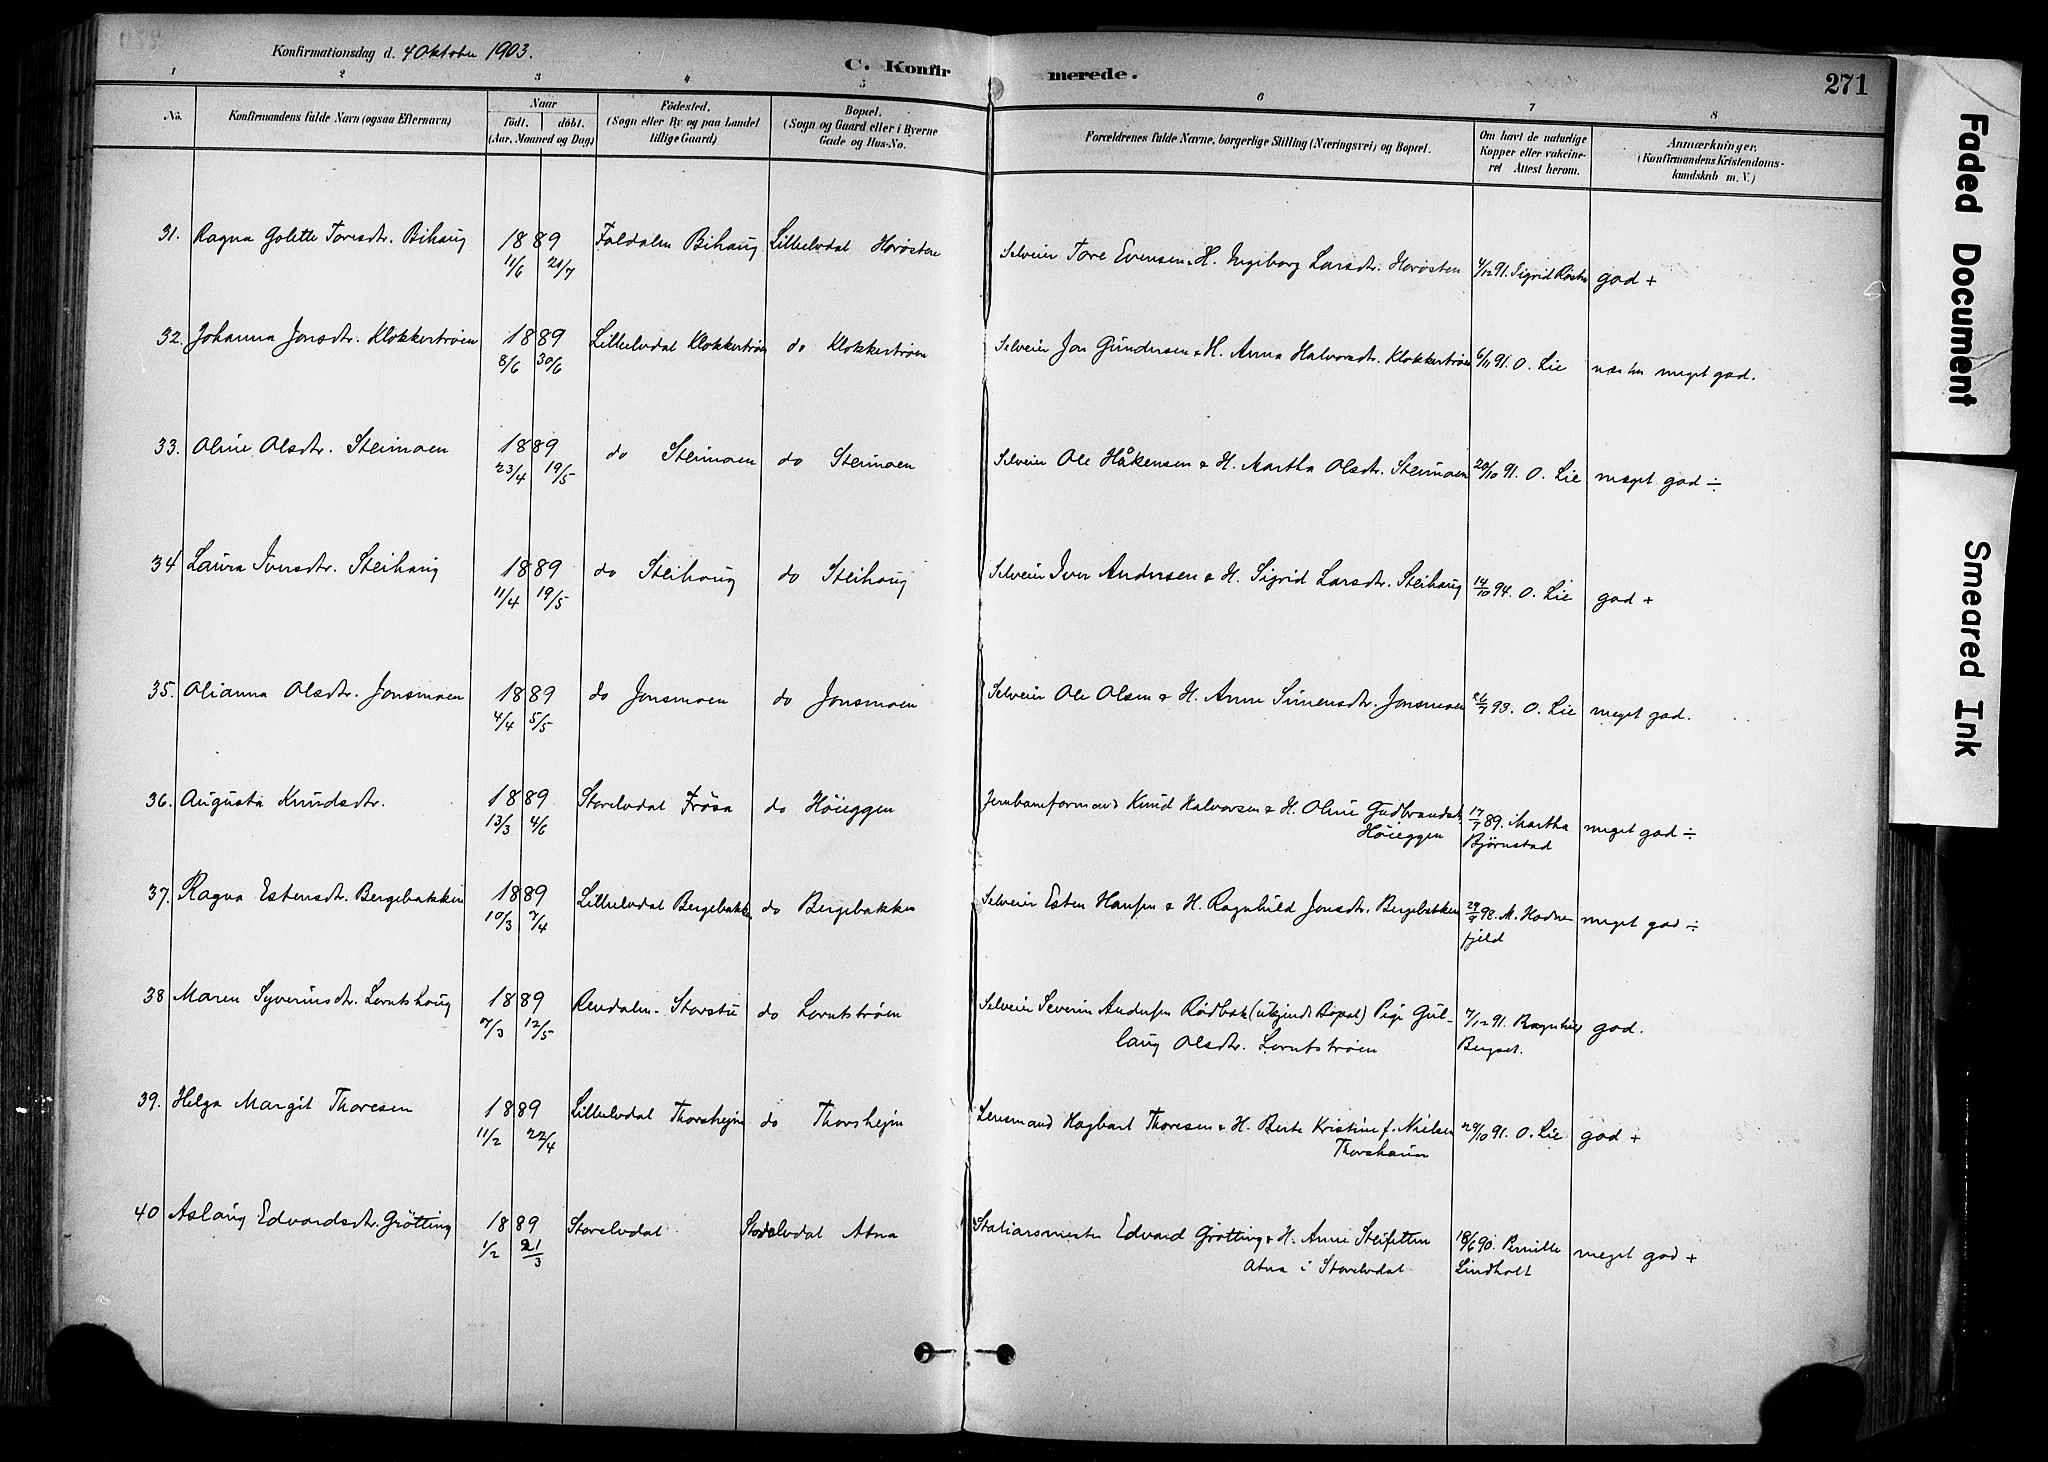 Konfirmationsdag d. 4 Oktober 1903.
C. Konfirmerede.
271
1 2 3 4 5 6 7 8
No.
Konfirmandens fulde Navn (ogsaa Efternavn)
Naar
født. døbt.
(Aar, Maaned og Dag)
Fødested.
(Sogn eller By og paa Landet
tillige Gaard)
Bopæl.
(Sogn og Gaard eller i Byerne
Gade og Hus-No.
Forældrenes fulde Navne, borgerlige Stilling (Næringsvei) og Bopæl.
Om havt de naturlige
Kopper eller vakcine-
ret Attest herom.
Anmærkninger.
(Konfirmandens Kristendoms-
kundskab m. V.)
31. Ragna Golette Toresdtr. Bihaug 1889 11/6 21/7 Foldalen Bihaug Lilleelvdal Horøsten Selveier Tore Evensen & H. Ingeborg Larsdtr. Horøsten 4/12 91. Sigrid god +
32. Johanna Jonsdtr. Klokkertrøen 1889 8/6 30/6 Lilleelvdal Klokkertrøen do Klokkertrøen Selveier Jon Gundersen & H. Anna Halvorsdtr. Klokkertrøen 6/11 91. O. Lie næsten meget god.
33. Oline Olsdtr. Steimoen 1889 23/4 19/5 do Steimoen do Steimoen Selveier Ole Håkensen & H. Martha Olsdtr. Steimoen 20/10 91. O. Lie meget god ÷
34 Laura Iversdtr. Steihaug 1889 11/4 19/5 do Steihaug do Steihaug Selveier Iver Andersen & H. Sigrid Larsdtr. Steihaug 14/10 94. O. Lie god +
35. Olianna Olsdtr. Jonsmoen 1889 4/4 5/5 do Jonsmoen do Jonsmoen Selveier Ole Olsen & H. Anne Simensdtr. Jonsmoen 26/7 93. O. Lie meget god.
36. Augusta Knudsdtr. 1889 13/3 4/6 Storelvdal Frøsa do Høieggen Jernbaneformand Knud Halvorsen & H. Oline Gudbrandsd. 17/7 89. Martha meget god ÷
Høieggen Bjørnstad
37. Ragna Estensdtr. Bergebakken 1889 10/3 7/4 Lilleelvdal Bergebakken do Bergebakken Selveier Esten Hansen & H. Ragnhild Jonsdtr. Bergebakken 29/9 98. M. Hadne- meget god ÷
fjeld
38 Maren Syverinsdtr. Lorntshaug 1889 7/3 12/5 Rendalen- Storstu do Lorntstrøen Selveier Severin Andersen Rødbak (ubekjendt Bopæl) Pige Gul- 7/12 91. Ragnhild god.
laug Olsdtr. Lorntstrøen Bergset.
39. Helga Margit Thoresen 1889 11/2 22/4 Lilleelvdal Thorshejm do Thorshejm Lensmand Hagbart Thoresen & H. Berte Kristine f. Nielsen 29/10 91. O. Lie god +
Thorshaim
40 Aslaug Edvardsdtr. Grøtting 1889 1/2 21/3 Storelvdal Storelvdal Atna Stationsmester Edvard Grøtting & H. Anne Steifetten 18/6 90. Pernille meget god +
Atna i Storelvdal Lindholt
Faded Document
Smeared Ink